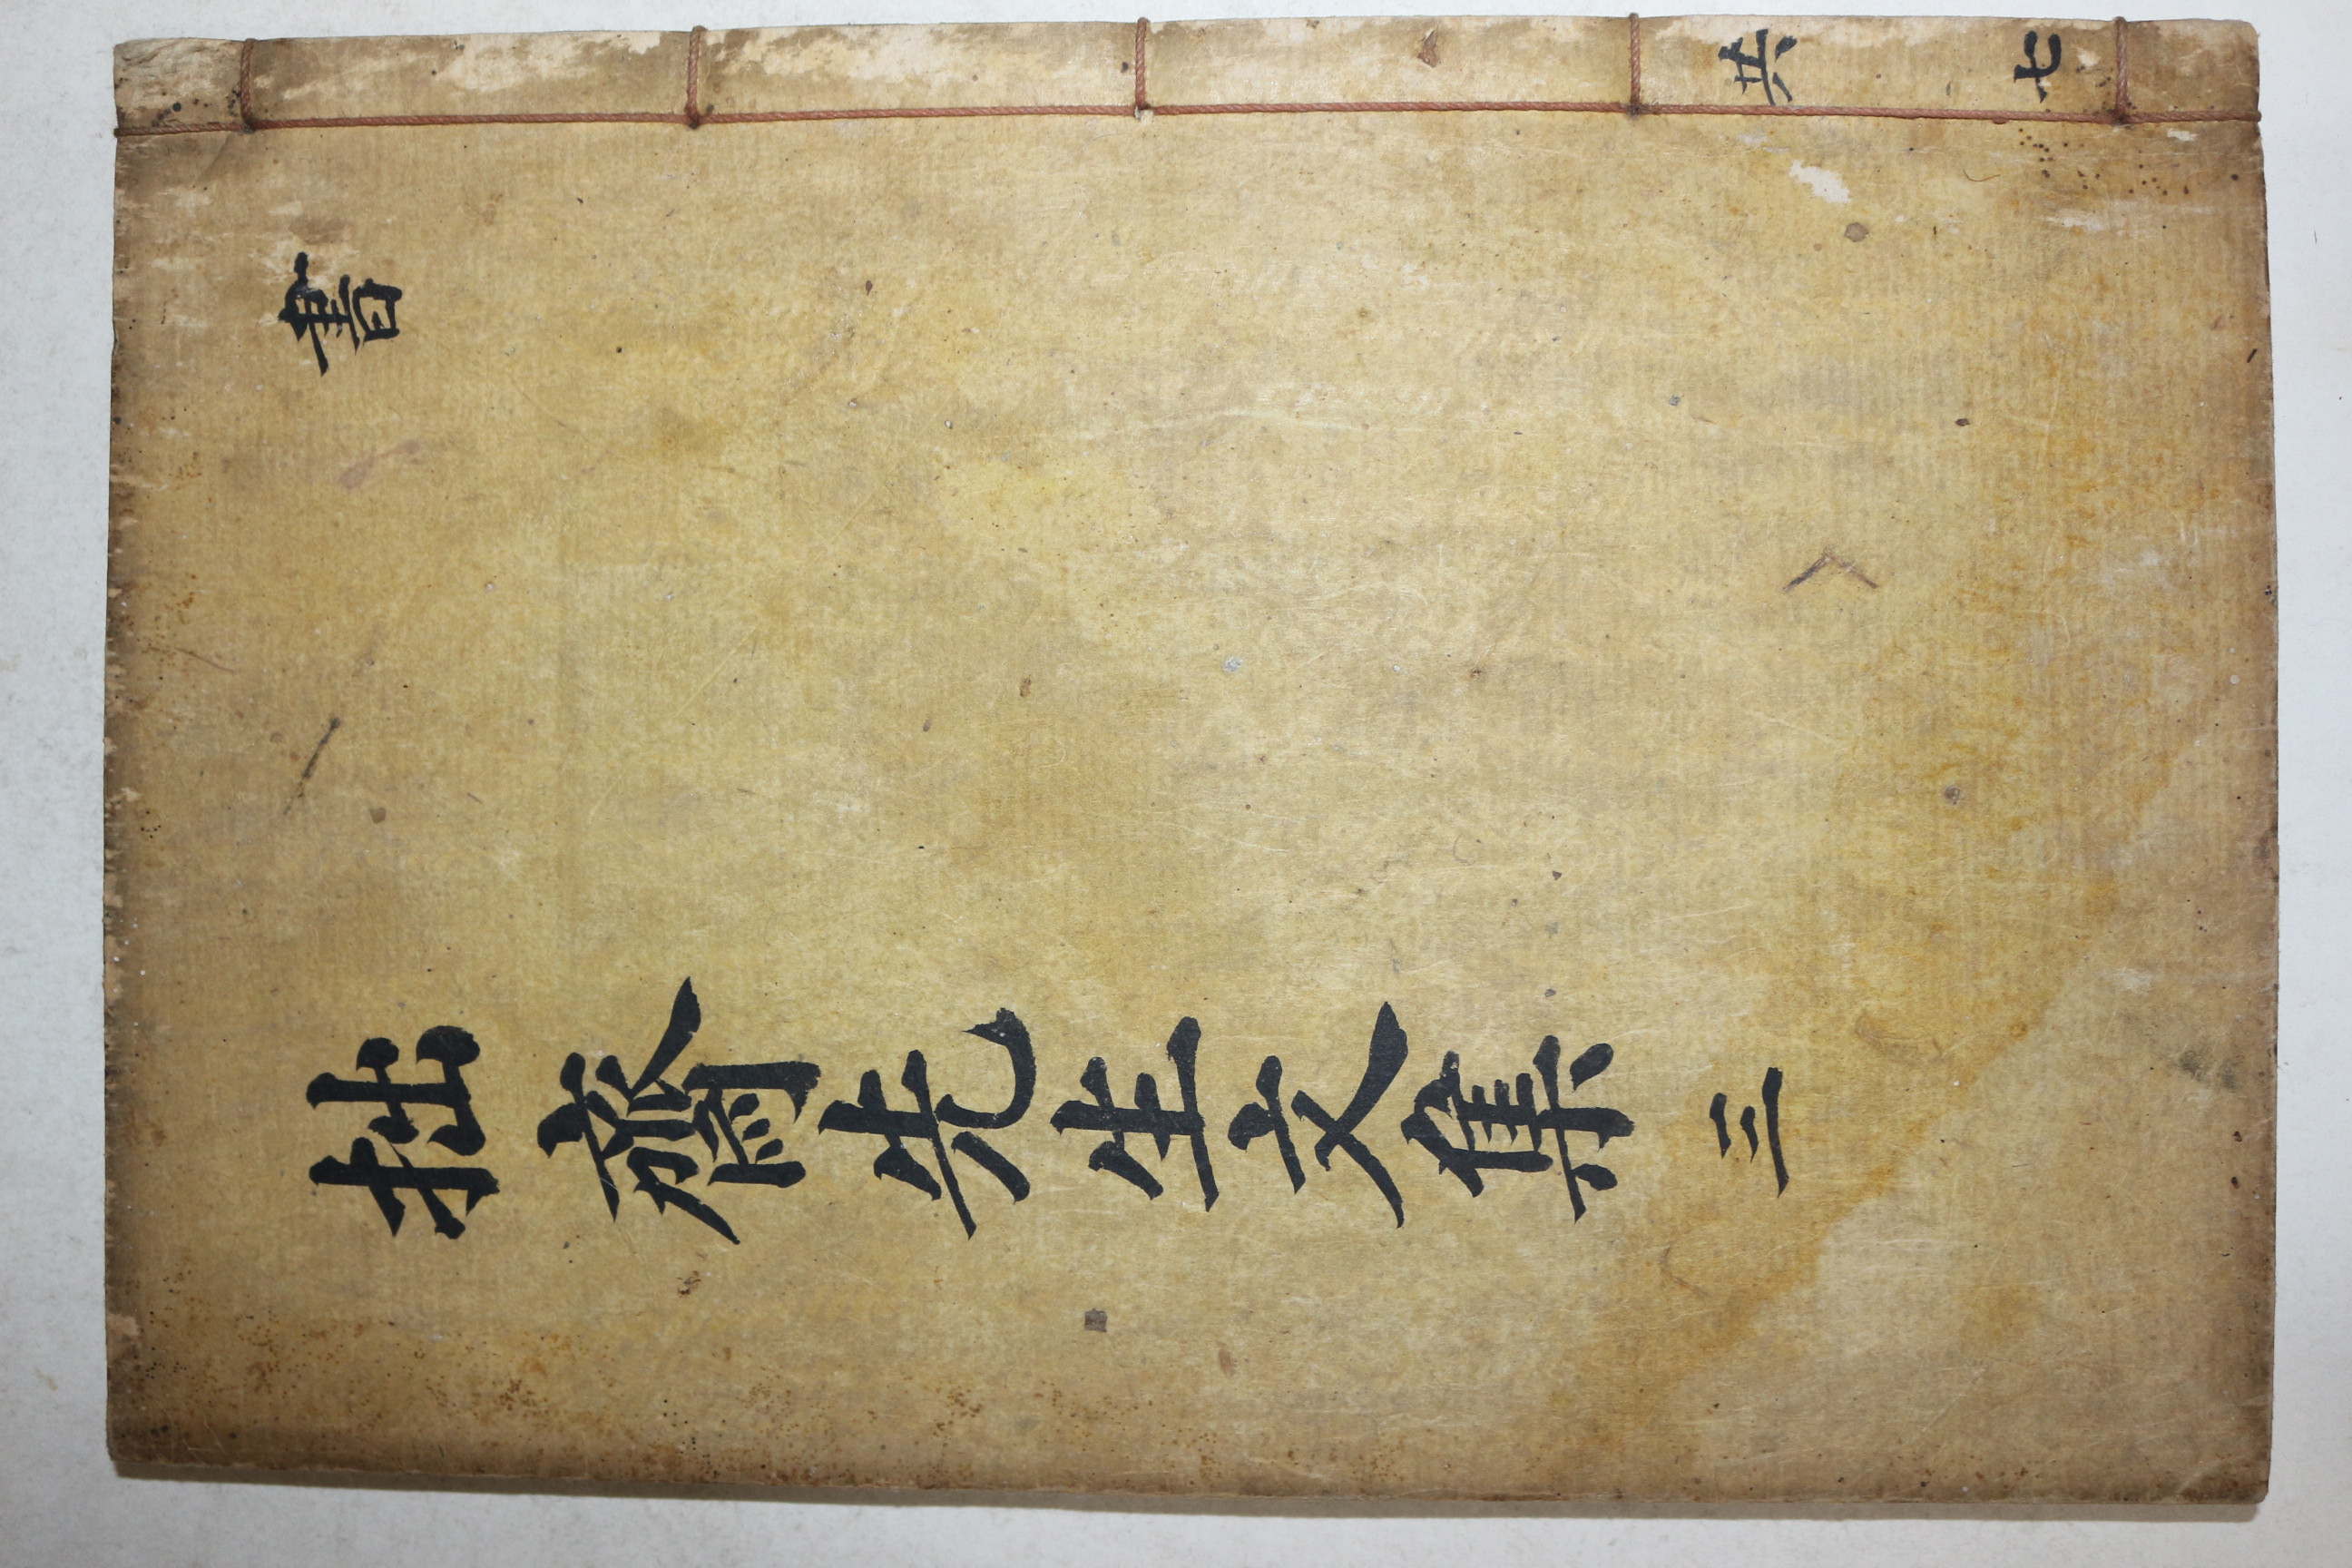 共七
書
拙齋先生文集 三